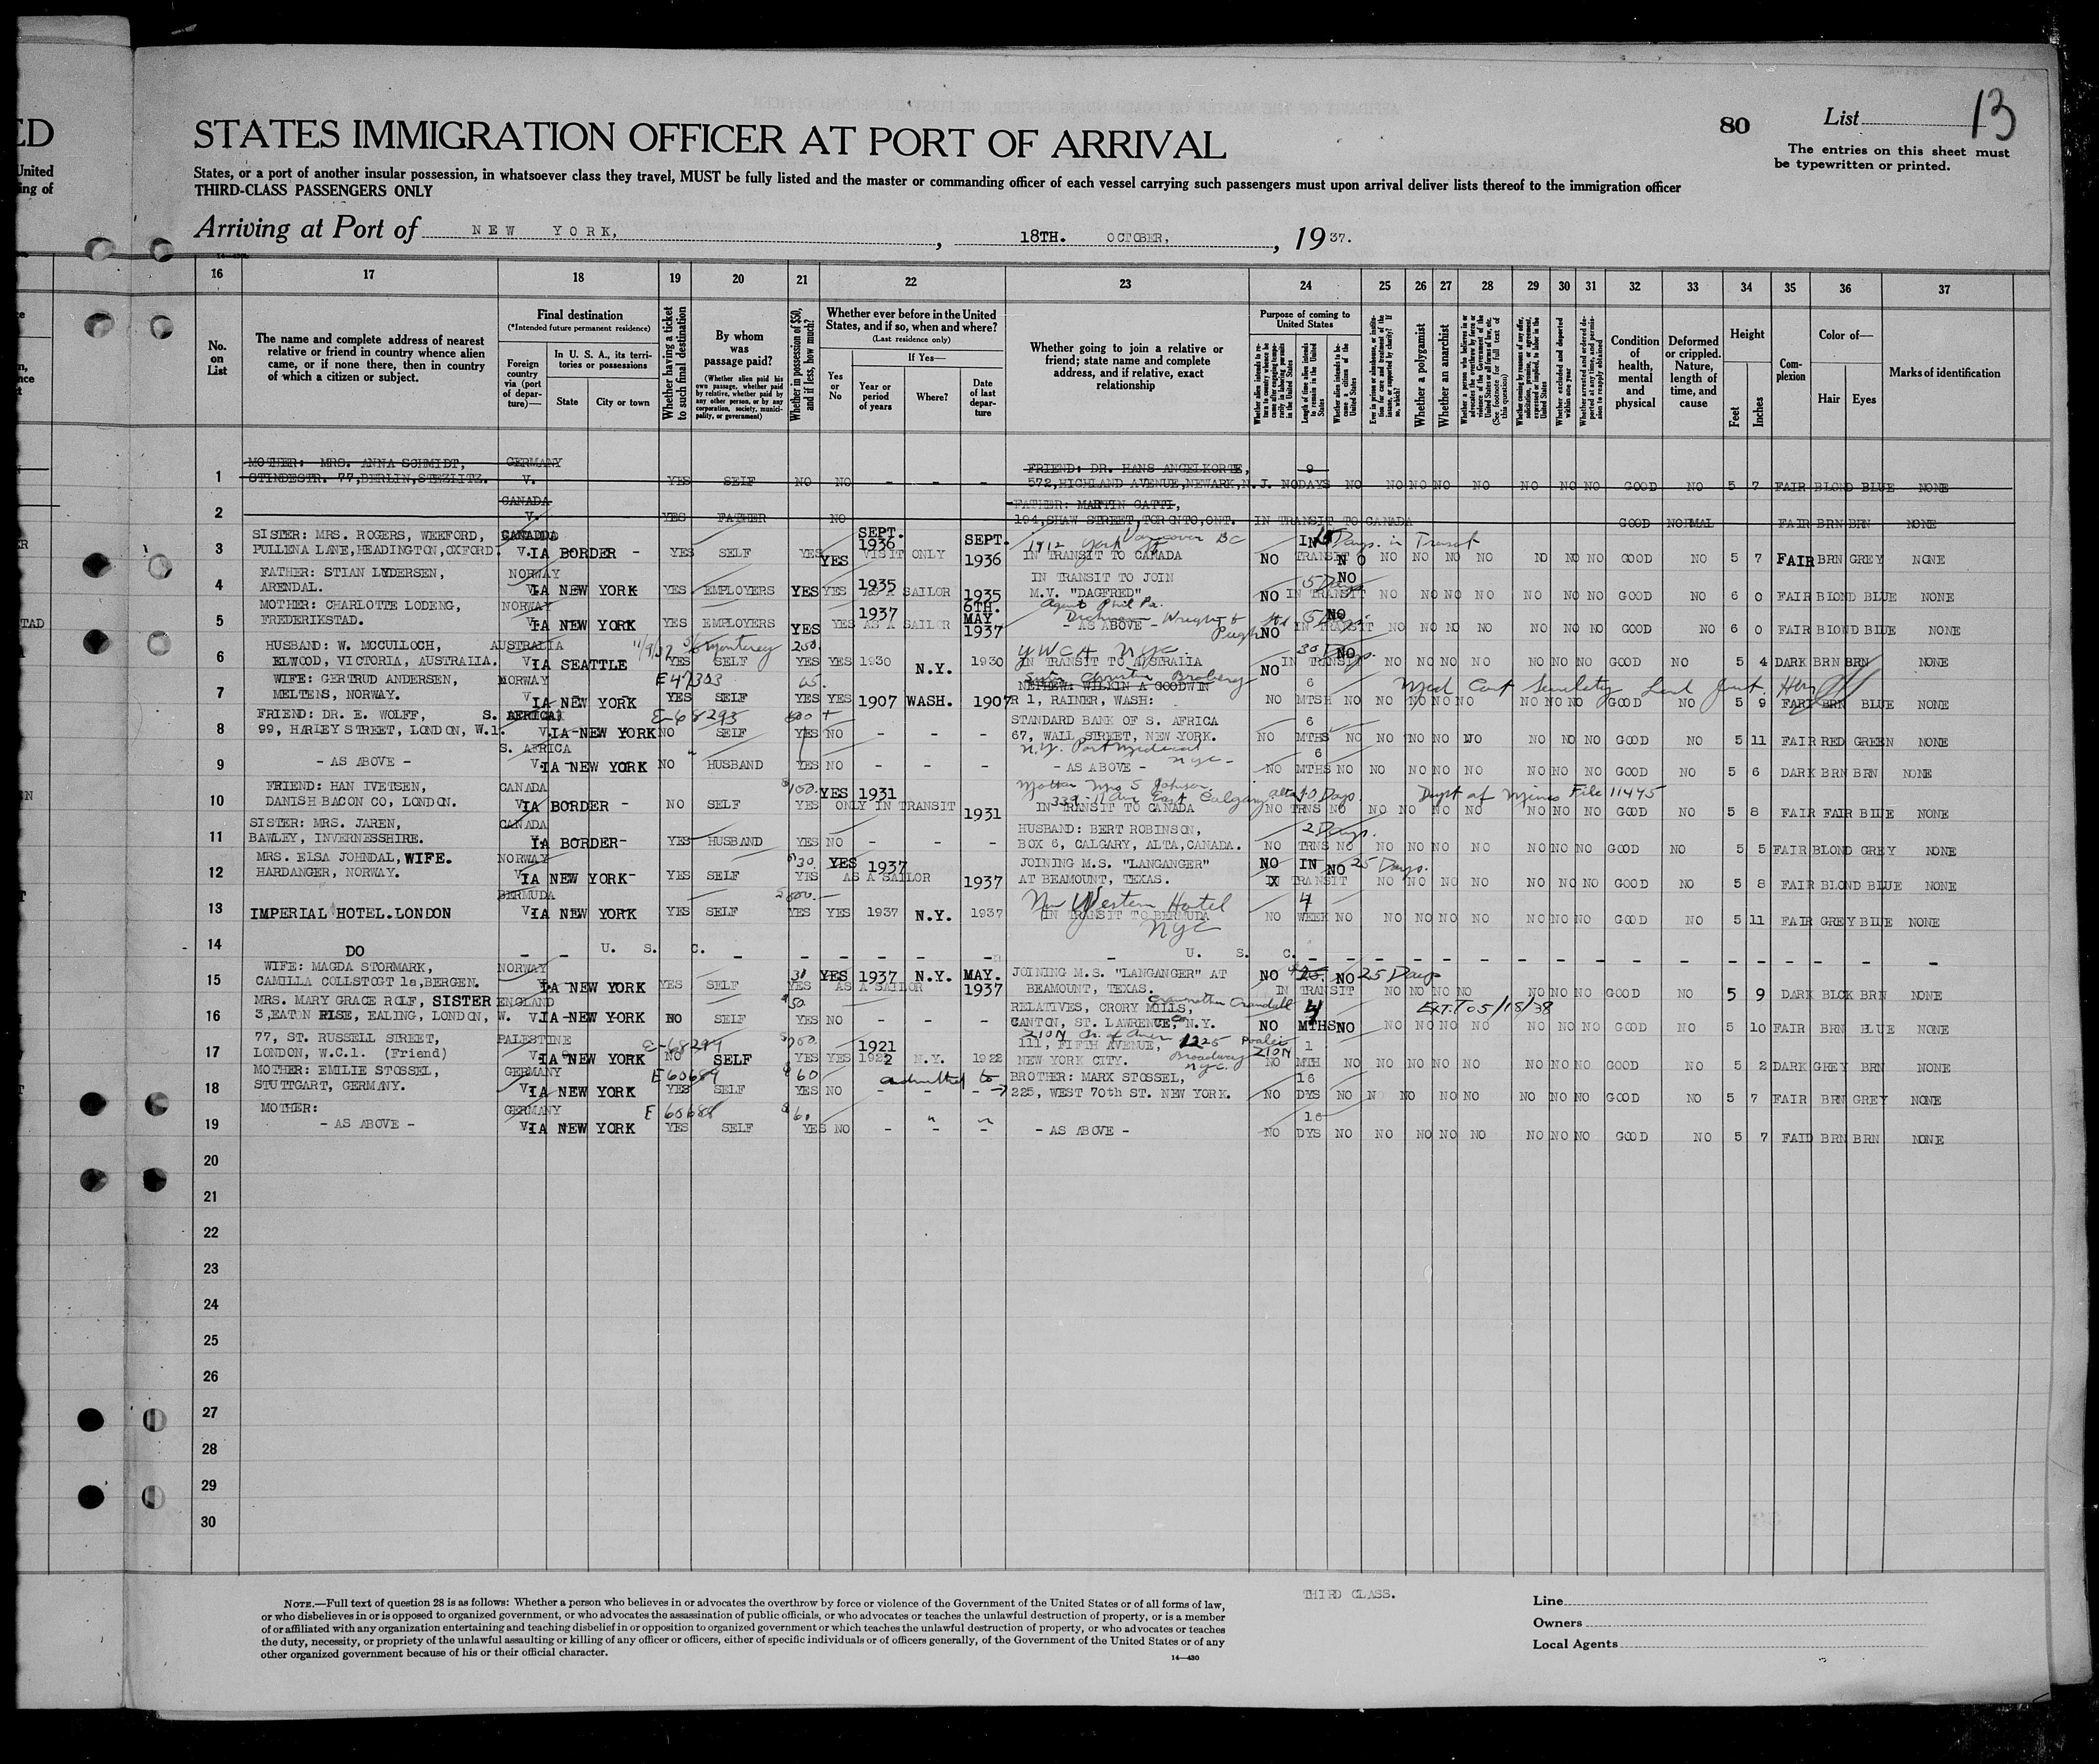 ED
United
ing of
80
List 13
The entries on this sheet must
be typewritten or printed.
STATES IMMIGRATION OFFICER AT PORT OF ARRIVAL
States, or a port of another insular possession, in whatsoever class they travel, MUST be fully listed and the master or commanding officer of each vessel carrying such passengers must upon arrival deliver lists thereof to the immigration officer
THIRD-CLASS PASSENGERS ONLY
Arriving at Port of NEW YORK, , 18TH. OCTOBER, , 19 37.
16 17 18 19 20 21 22 23 24 25 26 27 28 29 30 31 32 33 34 35 36 37
No. on List
The name and complete address of nearest
relative or friend in country whence alien
came, or if none there, then in country
of which a citizen or subject.
Final destination
(*Intended future permanent residence)
Foreign country via (port of departure)—
In U. S. A., its territories or possessions
State
City or town
Whether having a ticket to such final destination
By whom was passage paid?
(Whether alien paid his own passage, whether paid by relative, whether paid by any other person, or by any corporation, society, municipality, or government)
Whether in possession of $50, and if less, how much?
Whether ever before in the United
States, and if so, when and where?
(Last residence only)
Yes or No
If Yes—
Year or period of years
Where?
Date of last departure
Whether going to join a relative or
friend; state name and complete
address, and if relative, exact
relationship
Purpose of coming to United States
Length of time alien intends to remain in the United States
Whether a polygamist
Whether an anarchist
Condition of health, mental and physical
Deformed or crippled. Nature, length of time, and cause
Height
Feet
Inches
Complexion
Color of—
Hair
Eyes
Marks of identification
1 MOTHER: MRS. ANNA SCHMIDT, GERMANY FRIEND: DR. HANS ANGELKORTE, 9
STINDESTR. 77, BERLIN, STEZLITZ. V. YES SELF NO NO - - - 572, HIGHLAND AVENUE, NEWARK, N.J. NO DAYS NO NO NO NO NO NO NO NO GOOD NO 5 7 FAIR BLOND BLUE NONE
2 CANADA FATHER: MARTIN GATTI,
V. YES FATHER NO 194, SHAW STREET, TORONTO, ONT. IN TRANSIT TO CANADA GOOD NORMAL FAIR BRN BRN NONE
3 SISTER: MRS. ROGERS, WEEFORD, CANADA SEPT. 1936 SEPT. 1912 York Vancouver BC IN 15 Days in Transit
PULLENA LANE, HEADINGTON, OXFORD. VIA BORDER - YES SELF YES YES VISIT ONLY 1936 IN TRANSIT TO CANADA NO TRANSIT NO NO NO NO NO NO NO NO GOOD NO 5 7 FAIR BRN GREY NONE
4 FATHER: STIAN LYDERSEN, NORWAY 1935 IN TRANSIT TO JOIN 5 Days NO
ARENDAL. VIA NEW YORK YES EMPLOYERS YES YES AS A SAILOR 1935 M.V. "DAGFRED" NO IN TRANSIT NO NO NO NO NO NO NO GOOD NO 6 0 FAIR BLOND BLUE NONE
5 MOTHER: CHARLOTTE LODENG, NORWAY 1937 6TH. MAY Agent Phil Pa. NO
FREDERIKSTAD. VIA NEW YORK YES EMPLOYERS YES YES AS A SAILOR 1937 - AS ABOVE - Wright & Pugh NO IN TRANSIT NO NO NO NO NO NO NO GOOD NO 6 0 FAIR BLOND BLUE NONE
6 HUSBAND: W. MCCULLOCH, AUSTRALIA 11/9/37 Monterey 250. YWCA NYC. 30 Days. NO
ELWOOD, VICTORIA, AUSTRALIA. VIA SEATTLE YES SELF YES YES 1930 N.Y. 1930 IN TRANSIT TO AUSTRALIA NO IN TRANSIT NO NO NO NO NO NO NO GOOD NO 5 4 DARK BRN BRN NONE
7 WIFE: GERTRUD ANDERSEN, NORWAY E 47303 65. NEPHEW: WILKIN A GOODWIN 6 Med Cert
MELTENS, NORWAY. VIA NEW YORK YES SELF YES YES 1907 WASH. 1907 R 1, RAINER, WASH: NO MTSH NO NO NO NO NO NO NO NO GOOD NO 5 9 FARI BRN BLUE NONE
8 FRIEND: DR. E. WOLFF, S. AFRICA E-68293 STANDARD BANK OF S. AFRICA 6
99, HARLEY STREET, LONDON, W.1. VIA-NEW YORK NO SELF YES NO - - - 67, WALL STREET, NEW YORK. NO MTHS NO NO NO NO NO NO NO NO GOOD NO 5 11 FAIR RED GREEN NONE
9 S. AFRICA 6
- AS ABOVE - VIA-NEW YORK NO HUSBAND YES NO - - - - AS ABOVE - NO MTHS NO NO NO NO NO NO NO NO GOOD NO 5 6 DARK BRN BRN NONE
10 FRIEND: HAN IVETSEN, CANADA $100. YES 1931 Mother Mrs S Johnson 339-11 Ave East Calgary alta 10 Days Dept of Mines File 11445
DANISH BACON CO, LONDON. VIA BORDER - NO SELF YES ONLY IN TRANSIT 1931 IN TRANSIT TO CANADA NO TRNS NO NO NO NO NO NO NO NO GOOD NO 5 8 FAIR FAIR BLUE NONE
11 SISTER: MRS. JAREN, CANADA HUSBAND: BERT ROBINSON, 2 Days.
BAWLEY, INVERNESSHIRE. VIA BORDER- YES HUSBAND YES NO - - - BOX 6, CALGARY, ALTA, CANADA. NO TRNS NO NO NO NO NO NO NO NO GOOD NO 5 5 FAIR BLOND GREY NONE
12 MRS. ELSA JOHNDAL, WIFE. NORWAY $30. YES 1937 JOINING M.S. "LANGANGER" NO IN NO 25 Days.
HARDANGER, NORWAY. VIA NEW YORK- YES SELF YES AS A SAILOR 1937 AT BEAMOUNT, TEXAS. TRANSIT NO NO NO NO NO NO NO GOOD NO 5 8 FAIR BLOND BLUE NONE
13 BERMUDA New Western Hotel NYC 4
IMPERIAL HOTEL. LONDON VIA NEW YORK YES SELF YES YES 1937 N.Y. 1937 IN TRANSIT TO BERMUDA NO WEEK NO NO NO NO NO NO NO NO GOOD NO 5 11 FAIR GREY BLUE NONE
14 DO - - U. S. C. - - - - - - U. S. C. - - - - - - - - - - - - - - -
15 WIFE: MAGDA STORMARK, NORWAY 30 YES 1937 N.Y. MAY. JOINING M.S. "LANGANGER" AT NO NO 25 Days
CAMILLA COLLSTOGT 1a, BERGEN. VIA NEW YORK YES SELF YES AS A SAILOR 1937 BEAMOUNT, TEXAS. IN TRANSIT NO NO NO NO NO NO NO GOOD NO 5 9 DARK BLCK BRN NONE
16 MRS. MARY GRACE ROLF, SISTER ENGLAND $50. RELATIVES, CRORY MILLS, Grandmother Crandall 4 EXT. TO 5/18/38
3, EATON RISE, EALING, LONDON, W. VIA-NEW YORK NO SELF YES NO - - - CANTON, ST. LAWRENCE, N.Y. NO MTHS NO NO NO NO NO NO NO NO GOOD NO 5 10 FAIR BRN BLUE NONE
17 77, ST. RUSSELL STREET, PALESTINE E-68294 $200. 1921 111, FIFTH AVENUE, 1225 Broadway NYC. Poalie Zion 1
LONDON, W.C.1. (Friend) VIA NEW YORK NO SELF YES YES 1922 N.Y. 1922 NEW YORK CITY. NO MTH NO NO NO NO NO NO NO NO GOOD NO 5 2 DARK GREY BRN NONE
18 MOTHER: EMILIE STOSSEL, GERMANY E 60689 $60 admitted to BROTHER: MARX STOSSEL, 16
STUTTGART, GERMANY. VIA NEW YORK YES SELF YES NO - - - 225, WEST 70th ST. NEW YORK. NO DYS NO NO NO NO NO NO NO NO GOOD NO 5 7 FAIR BRN GREY NONE
19 MOTHER: GERMANY E 60688 $60 " " 16
- AS ABOVE - VIA NEW YORK YES SELF YES NO - - - - AS ABOVE - NO DYS NO NO NO NO NO NO NO NO GOOD NO 5 7 FAID BRN BRN NONE
20
21
22
23
24
25
26
27
28
29
30
THIRD CLASS.
NOTE.—Full text of question 28 is as follows: Whether a person who believes in or advocates the overthrow by force or violence of the Government of the United States or of all forms of law,
or who disbelieves in or is opposed to organized government, or who advocates the assassination of public officials, or who advocates or teaches the unlawful destruction of property, or is a member
of or affiliated with any organization entertaining and teaching disbelief in or opposition to organized government or which teaches the unlawful destruction of property, or who advocates or teaches
the duty, necessity, or propriety of the unlawful assaulting or killing of any officer or officers, either of specific individuals or of officers generally, of the Government of the United States or of any
other organized government because of his or their official character.
14—430
Line
Owners
Local Agents